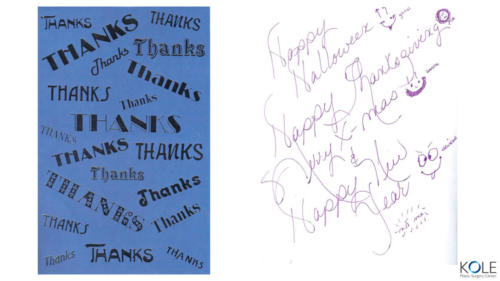 THANKS
THANKS
THANKS
Thanks
Thanks
Thanks
THANKS
Thanks
THANKS
THANKS
THANKS
THANKS
Thanks
THANKS
Thanks
THANKS
Thanks
THANKS
Thanks
THANKS
Happy
Halloween!!
you
Happy Thanksgiving
Merry X-mas!!
&
Happy New
Year
KOLE
Plastic Surgery Center